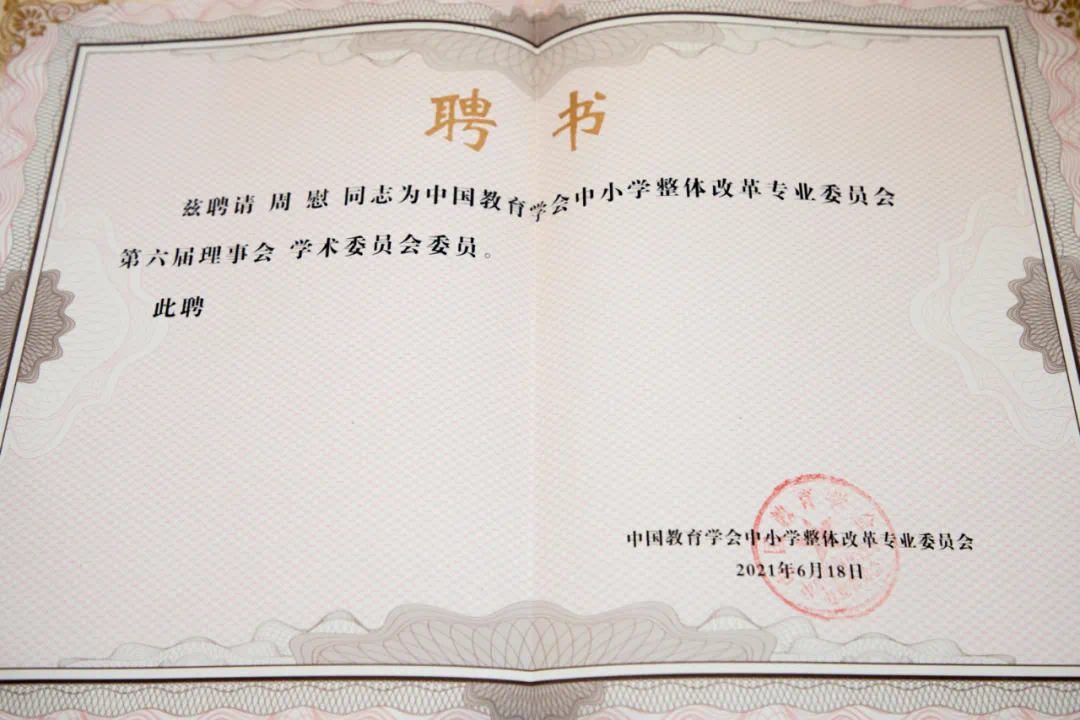 聘书
兹聘请 周 慰 同志为中国教育学会中小学整体改革专业委员会
第六届理事会 学术委员会委员。
此聘
中国教育学会中小学整体改革专业委员会
2021年6月18日